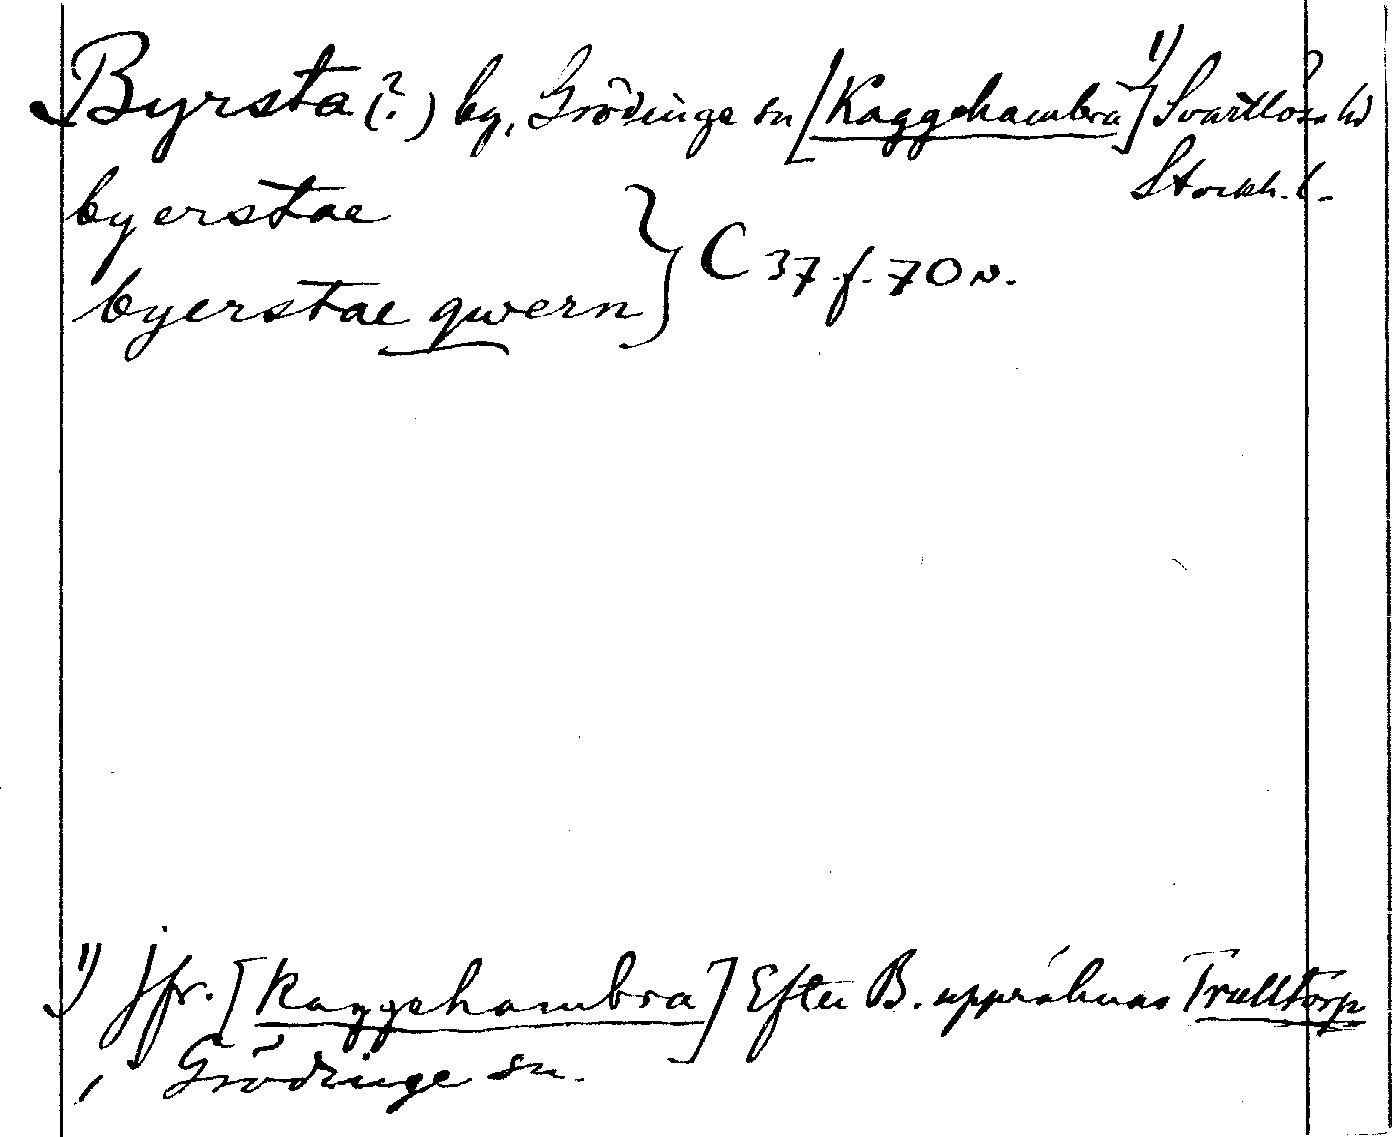 Byrsta (?) by, Grödinge sn [Kaggehambra] 1) Svartlösa hd
Stockh. l.
byerstae
byerstae qwern } C 37 f. 70 v.
1) Jfr. [Kaggehambra] Efter B. uppräknas Trälltorp
, Grödinge sn.